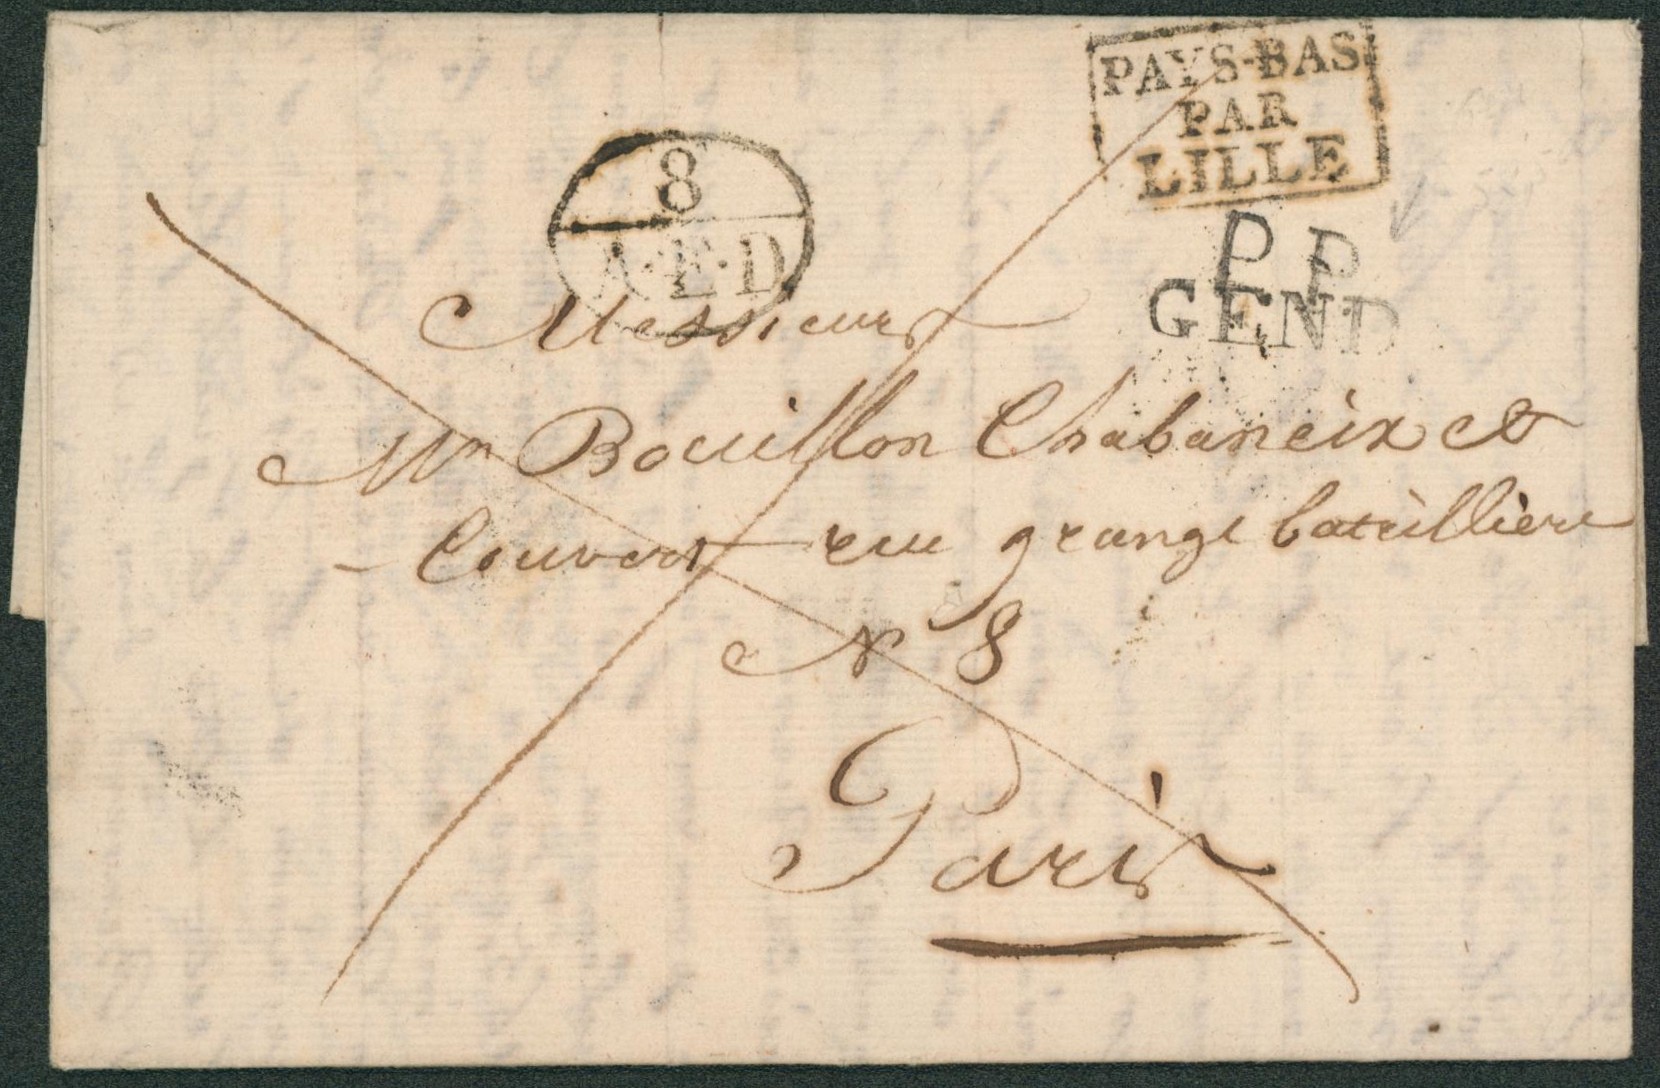 PAYS-BAS
PAR
LILLE
8
A·E·D
P P
GEND
Messieurs
Mrs Bouillon Chabaneix et
Couvert rue grange bateillière
No 8
Paris